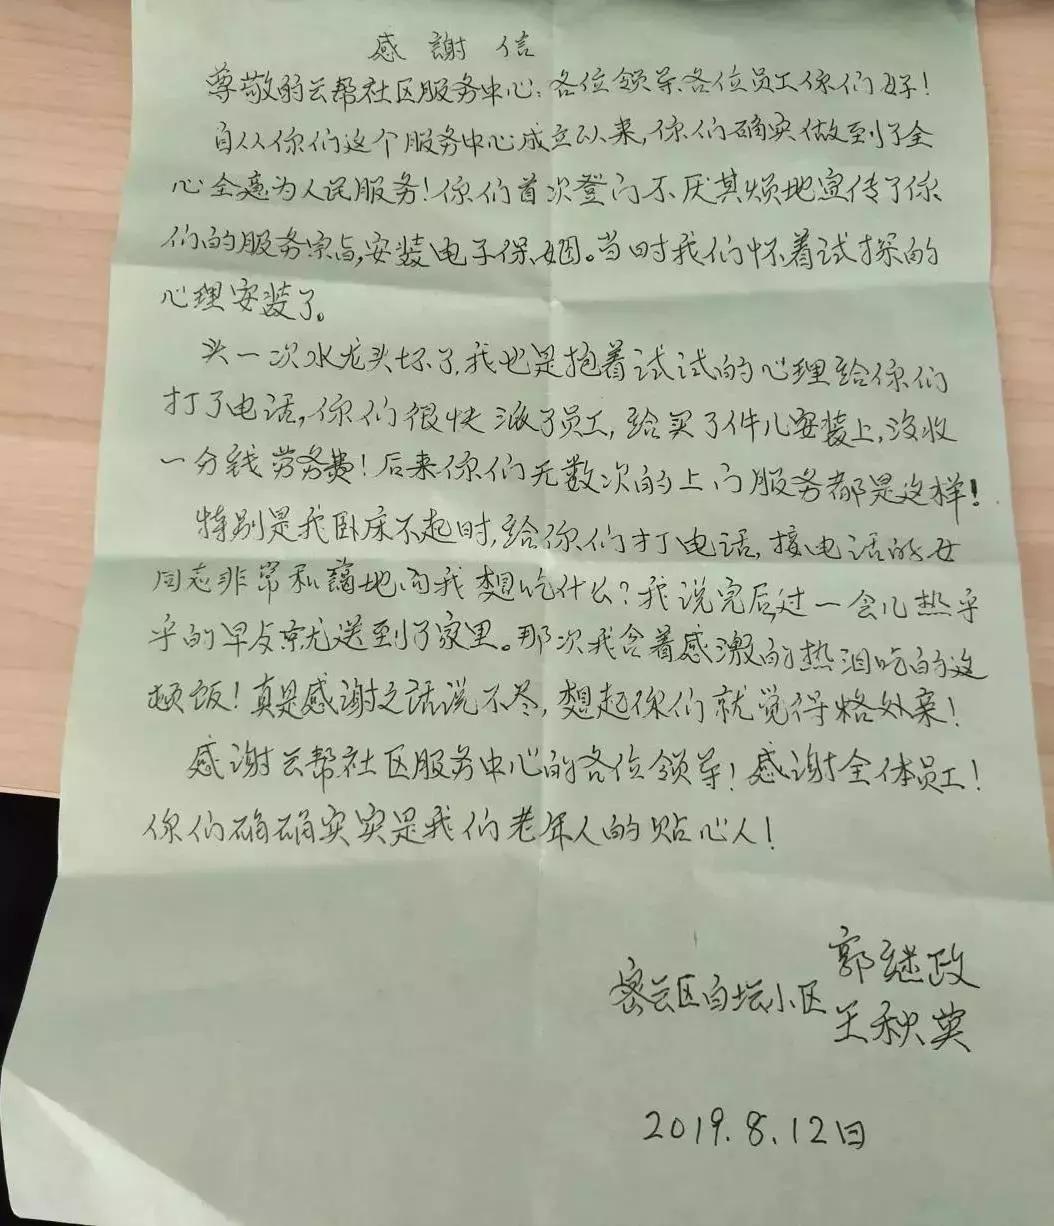 感謝信
尊敬的云帮社区服务中心:各位领导、各位员工你们好!
自从你们这个服务中心成立以来,你们确实做到了全
心全意为人民服务!你们首次登门不厌其烦地宣传了你
们的服务宗旨,安装电子保姆。当时我们怀着试探的
心理安装了。
头一次水龙头坏了,我也是抱着试试的心理给你们
打了电话,你们很快派了员工,给买了件儿安装上,没收
一分钱劳务费!后来你们无数次的上门服务都是这样!
特别是我卧床不起时,给你们打电话,接电话的女
同志非常和藹地问我想吃什么?我说完后过一会儿热乎
乎的早点就送到了家里。那次我含着感激的热泪吃的这
顿饭!真是感谢之话说不尽,想起你们就觉得格外亲!
感谢云帮社区服务中心的各位领导!感谢全体员工!
你们确确实实是我们老年人的贴心人!
密云区白坛小区
郭继政
王秋英
2019.8.12日